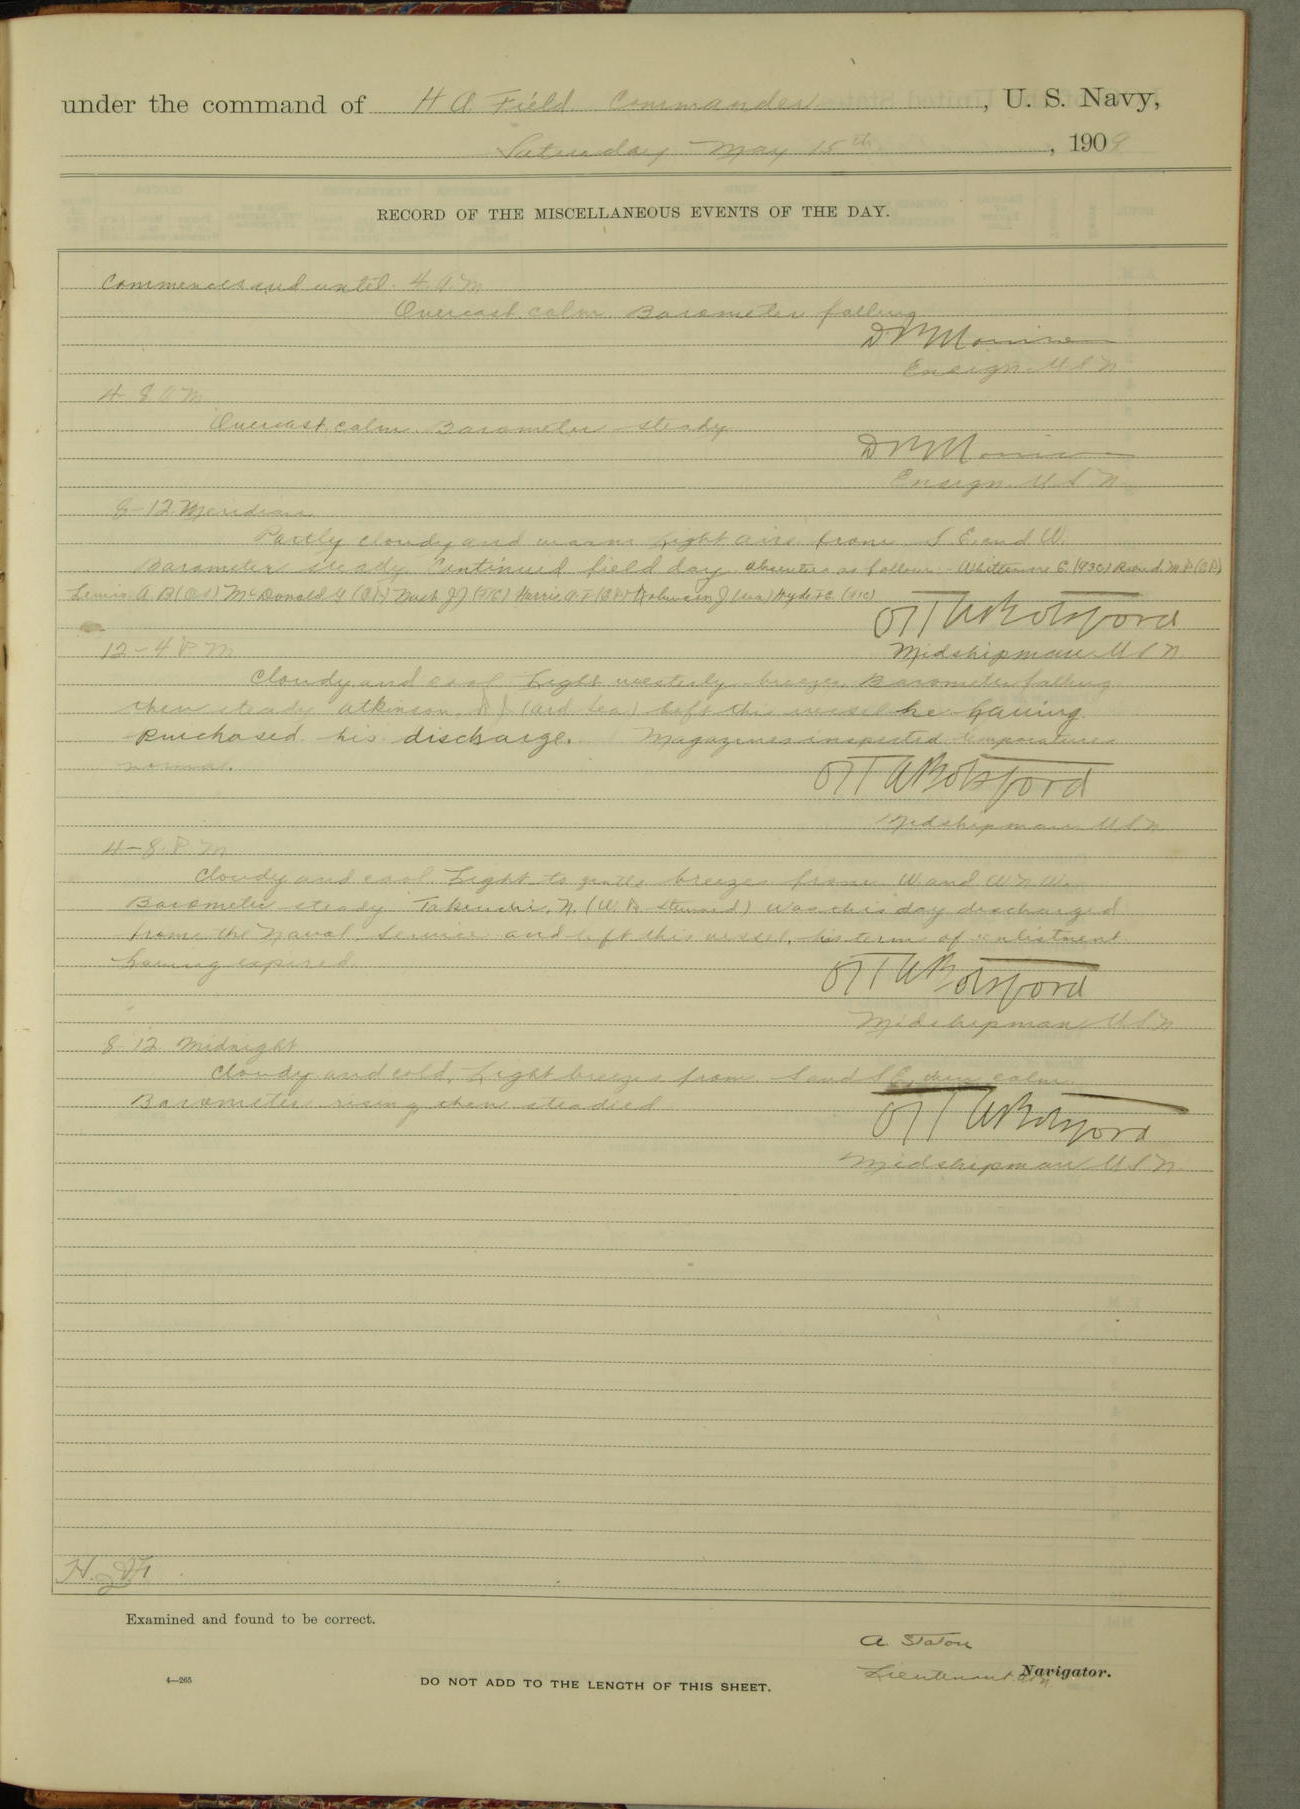 under the command of H A Field Commander, U. S. Navy,
Saturday May 15th, 1909
RECORD OF THE MISCELLANEOUS EVENTS OF THE DAY.
Commences and until 4 A M
Overcast calm Barometer falling
Ensign U S N
4 8 A M
Overcast calm Barometer steady
Ensign U S N
8-12 Meridian
Partly cloudy and warm Light airs from S E and W.
Barometer steady Continued field day absentees as follow Whittemore E
Lewis A B (OS) McDonald G Nash J J Harris A F Robinson J (sea) Hyde
O T W Botsford
Midshipman U S N
12-4 P M
Cloudy and cool Light westerly breezes Barometer falling
then steady Atkinson (ord Sea) left this vessel he having
purchased his discharge. Magazines inspected temperatures
normal.
Botsford
Midshipman U S N
4-8 P M
Cloudy and cool. Light to gentle breezes from W and W N W.
Barometer steady Takeuchi, N. (W. R. Steward) was this day discharged
from the Naval Service and left this vessel, his term of enlistment
having expired.
Botsford
Midshipman U S N
8 12 Midnight
Cloudy and cold, Light breezes from S and S E, then calm
Barometer rising then steadied
Botsford
Midshipman U S N
Examined and found to be correct.
A. Staton
Lieutenant U.S.N. Navigator.
4—265
DO NOT ADD TO THE LENGTH OF THIS SHEET.